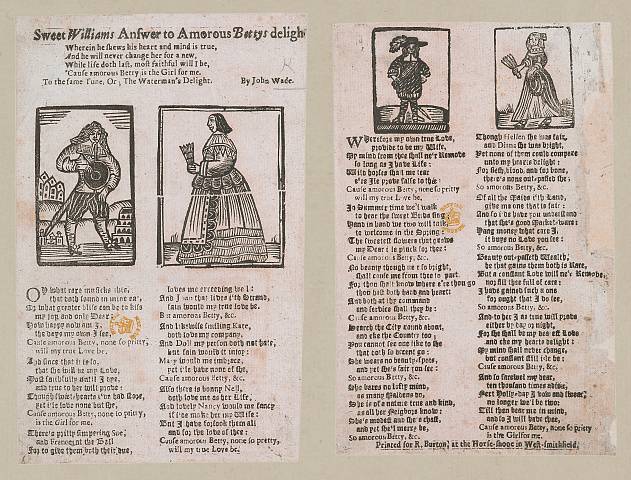 Sweet Williams Answer to Amorous Bettys deligh
Wherein he shews his heart and mind is true,
And he will never change her for a new,
While life doth last, most faithful will I be,
'Cause amorous Betty is the Girl for me.
To the same Tune, Or, The Waterman's Delight. By John Wade.
OH what rare musick's this,
that doth sound in mine ear,
No what greater bliss can be to kiss
my joy and only Dear;
How happy now am I
the days my own I see,
Cause amorous Betty, none so pritty
will my true Love be.
And since that it is so,
that she will be my Love,
Most faithfully until I dye,
and true to her will prove:
Though sweet-hearts I've had store,
yet i'le love none but she,
Cause amorous Betty, none so pritty,
is the Girl for me.
There's pritty simpering Sue,
and Frances in the Dell
For to give them both their due,
loves me exceeding well:
And Joan that lives i'th Strand,
fain would my true love be,
But amorous Betty, &c.
And likewise smiling Kate,
both love my company.
And Doll my person doth not hate,
but fain would it injoy:
Mary would me embrace,
yet i'le have none of she,
Cause amorous Betty, &c.
Also there is bonny Nell,
doth love me as her Life,
And lovely Nancy would me fancy
if i'le make her my Wife:
But I have forsook them all
and for the love of thee:
Cause amorous Betty, none so pretty,
will my true Love be.
Wherefore my own true Love,
provide to be my Wife,
My mind from thee shall ne'r Remove
so long as I have Life:
Wild horses shall me tear
e're I'le prove false to thee
Cause amorous Betty, none so pritty
will my true Love be.
In Summer time we'l walk
to hear the sweet Birds sing;
Hand in hand we two will talk
to welcome in the Spring:
The sweetest flowers that grows
my Dear i'le pluck for thee:
Cause amorous Betty, &c.
No beauty though ne'r so bright,
shall cause me from thee to part.
For thou shalt know where e're thou go
thou hast both hand and heart:
And both at thy command
and service shall they be:
Cause amorous Betty, &c.
Search the City round about,
and eke the Country too;
You cannot see one like to she
that doth so decent go:
She wears no beauty-spots,
and yet she's fair you see:
So amorous Betty, &c.
She bares no lofty mind,
as many Maidens do,
She is of a nature true and kind,
as all her Neighbors know:
She's modest and she's chast,
and yet she'l merry be,
So amorous Betty, &c.
Though Hellen she was fair,
and Diana she was bright,
Yet none of them could compare
unto my hearts delight:
For flesh, blood, and for bone,
there's none out-passed she;
So amorous Betty, &c.
Of all the Maids i'th Land,
give me one that is fair:
And so I do have you understand
that she's good Market-ware:
Hang money what care I,
it buyes no Love you see:
So amorous Betty, &c.
Beauty out-passeth Wealth,
he that gains them both is Rare,
But a constant Love will ne'r Remove,
nor fill thee full of care:
I have gained such a one
for ought that I do see,
So amorous Betty, &c.
And to her I as time will prove
either by day or night,
For she shall be my dearest Love
and eke my hearts delight:
My mind shall never change,
but constant still i'le be:
So amorous Betty, &c.
And so farewel my dear,
ten thousand times adieu,
Next Holly-day I vow and swear,
no longer we'l be two:
Till then bear me in mind,
and so I will have thee,
Cause amorous Betty, none so pritty
is the Girl for me.
Printed for R. Burton, at the Horse-shooe in West-smithfield.